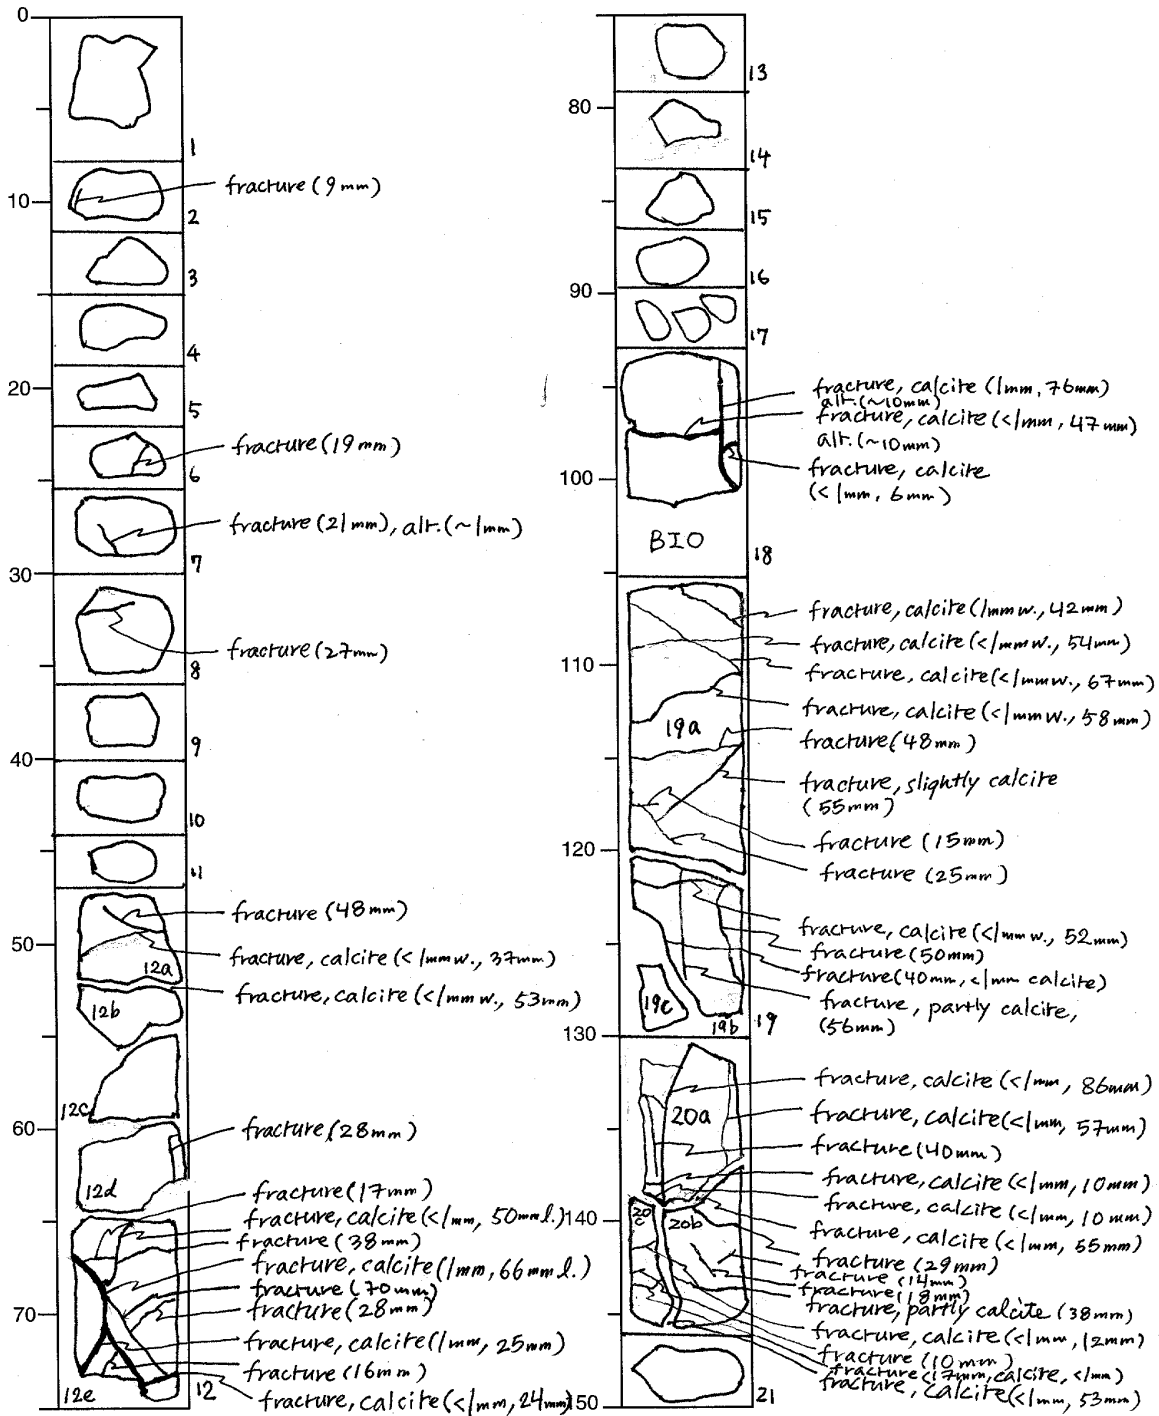 0
1
fracture (9mm)
10
2
3
4
20
5
fracture (19mm)
6
fracture (21mm), alt. (~1mm)
7
30
fracture (27mm)
8
9
40
10
11
fracture (48mm)
50
12a
fracture, calcite (<1mmw., 37mm)
12b
fracture, calcite (<1mmw., 53mm)
12c
60
fracture (28mm)
12d
fracture (17mm)
fracture, calcite (<1mm, 50mml.)
fracture (38mm)
fracture, calcite (1mm, 66mml.)
fracture (70mm)
70
fracture (28mm)
fracture, calcite (1mm, 25mm)
fracture (16mm)
12e
12
fracture, calcite (<1mm, 24mm)
13
80
14
15
16
90
17
fracture, calcite (1mm, 76mm)
alt. (~10mm)
fracture, calcite (<1mm, 47mm)
alt. (~10mm)
100
fracture, calcite
(<1mm, 6mm)
BIO
18
fracture, calcite (1mmw., 42mm)
fracture, calcite (<1mmw., 54mm)
110
fracture, calcite (<1mmw., 67mm)
fracture, calcite (<1mmw., 58mm)
19a
fracture (48mm)
fracture, slightly calcite
(55mm)
fracture (15mm)
120
fracture (25mm)
fracture, calcite (<1mmw., 52mm)
fracture (50mm)
fracture (40mm, <1mm calcite)
19c
fracture, partly calcite,
19b
19
(56mm)
130
fracture, calcite (<1mm, 86mm)
20a
fracture, calcite (<1mm, 57mm)
fracture (40mm)
fracture, calcite (<1mm, 10mm)
fracture, calcite (<1mm, 10mm)
140
20c
20b
fracture, calcite (<1mm, 55mm)
fracture (29mm)
fracture (14mm)
fracture (18mm)
fracture, partly calcite (38mm)
fracture, calcite (<1mm, 12mm)
fracture (10mm)
fracture (17mm, calcite, <1mm)
fracture, calcite (<1mm, 53mm)
150
21